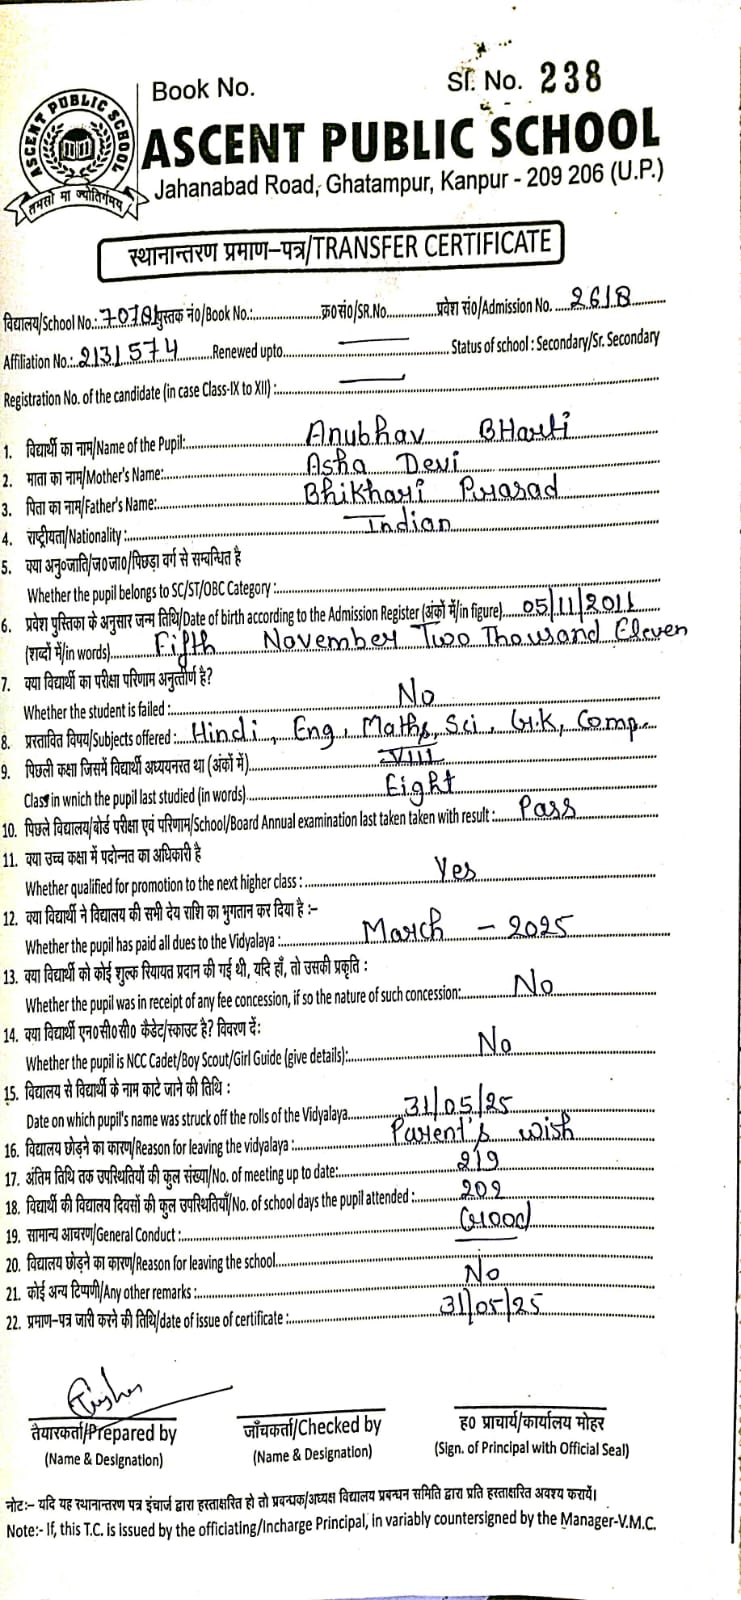 Book No.
Sl. No. 238
ASCENT PUBLIC SCHOOL
तमसो मा ज्योतिर्गमय
ASCENT PUBLIC SCHOOL
Jahanabad Road, Ghatampur, Kanpur - 209 206 (U.P.)
स्थानान्तरण प्रमाण-पत्र/TRANSFER CERTIFICATE
विद्यालय/School No.: पुस्तक नं0/Book No.: क्र0सं0/SR.No. प्रवेश सं0/Admission No. 2618
Affiliation No.: 2131574 Renewed upto Status of school : Secondary/Sr. Secondary
Registration No. of the candidate (in case Class-IX to XII) :
1. विद्यार्थी का नाम/Name of the Pupil: Anubhav BHarti
2. माता का नाम/Mother's Name: Asha Devi
3. पिता का नाम/Father's Name: Bhikhari Prasad
4. राष्ट्रीयता/Nationality : Indian
5. क्या अनु०जाति/ज०जा०/पिछड़ा वर्ग से सम्बन्धित है
Whether the pupil belongs to SC/ST/OBC Category :
6. प्रवेश पुस्तिका के अनुसार जन्म तिथि/Date of birth according to the Admission Register (अंकों में/in figure) 05/11/2011
(शब्दों में/in words) Fifth November Two Thousand Eleven
7. क्या विद्यार्थी का परीक्षा परिणाम अनुत्तीर्ण है?
Whether the student is failed : No
8. प्रस्तावित विषय/Subjects offered : Hindi, Eng, Maths, Sci, G.K, Comp.
9. पिछली कक्षा जिसमें विद्यार्थी अध्ययनरत था (अंकों में) VIII
Class in wnich the pupil last studied (in words) Eight
10. पिछले विद्यालय/बोर्ड परीक्षा एवं परिणाम/School/Board Annual examination last taken taken with result : Pass
11. क्या उच्च कक्षा में पदोन्नत का अधिकारी है
Whether qualified for promotion to the next higher class : Yes
12. क्या विद्यार्थी ने विद्यालय की सभी देय राशि का भुगतान कर दिया है :-
Whether the pupil has paid all dues to the Vidyalaya : March - 2025
13. क्या विद्यार्थी को कोई शुल्क रियायत प्रदान की गई थी, यदि हाँ, तो उसकी प्रकृति :
Whether the pupil was in receipt of any fee concession, if so the nature of such concession: No
14. क्या विद्यार्थी एन०सी०सी० कैडेट/स्काउट है? विवरण दें:
Whether the pupil is NCC Cadet/Boy Scout/Girl Guide (give details): No
15. विद्यालय से विद्यार्थी के नाम काटे जाने की तिथि :
Date on which pupil's name was struck off the rolls of the Vidyalaya 31/05/25
16. विद्यालय छोड़ने का कारण/Reason for leaving the vidyalaya : Parent's wish
17. अंतिम तिथि तक उपस्थितियों की कुल संख्या/No. of meeting up to date: 219
18. विद्यार्थी की विद्यालय दिवसों की कुल उपस्थितियाँ/No. of school days the pupil attended : 202
19. सामान्य आचरण/General Conduct : Good
20. विद्यालय छोड़ने का कारण/Reason for leaving the school
21. कोई अन्य टिप्पणी/Any other remarks : No
22. प्रमाण-पत्र जारी करने की तिथि/date of issue of certificate : 31/05/25
तैयारकर्ता/Prepared by
(Name & Designation)
जाँचकर्ता/Checked by
(Name & Designation)
ह0 प्राचार्य/कार्यालय मोहर
(Sign. of Principal with Official Seal)
नोट:- यदि यह स्थानान्तरण पत्र इंचार्ज द्वारा हस्ताक्षरित हो तो प्रबन्धक/अध्यक्ष विद्यालय प्रबन्धन समिति द्वारा प्रति हस्ताक्षरित अवश्य करायें।
Note:- If, this T.C. is issued by the officiating/Incharge Principal, in variably countersigned by the Manager-V.M.C.